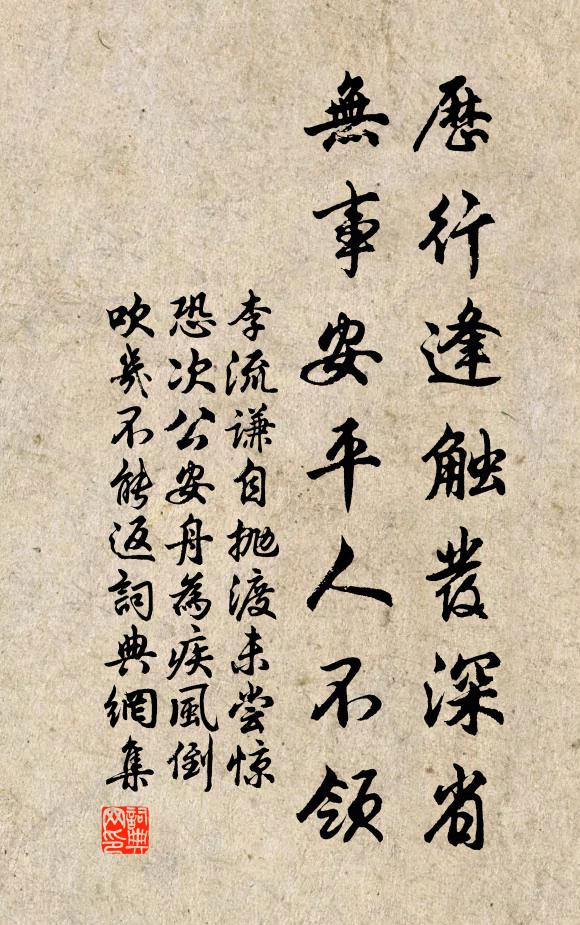 歷行逢触發深省
無事安平人不領
李流謙自抛渡未尝惊
恐次公安舟為疾風倒
吹幾不能返詞典網集
詞典网印